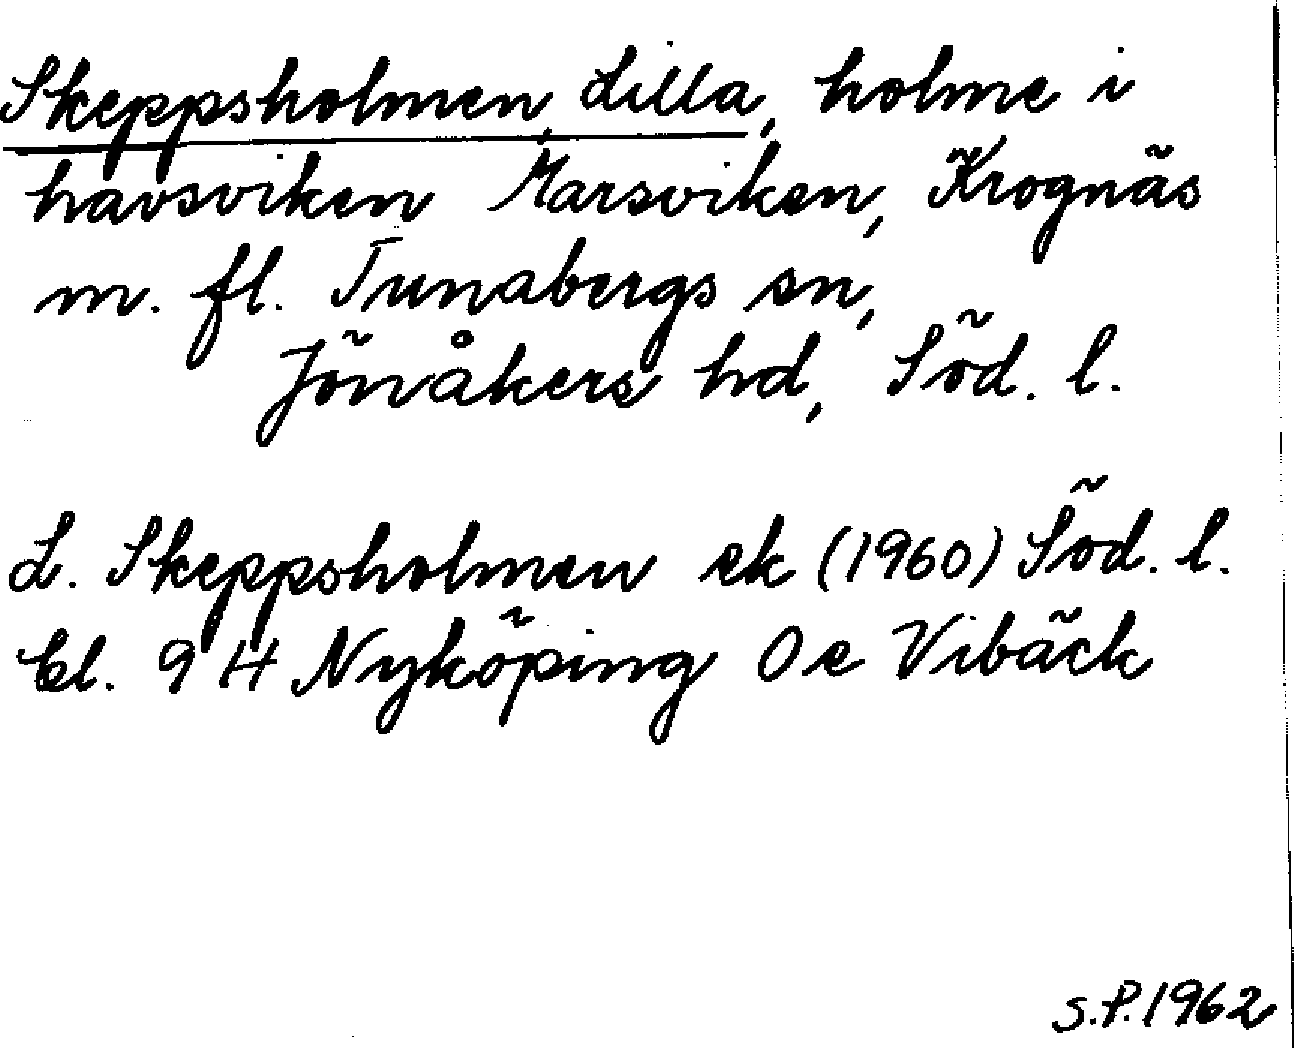 Skeppsholmen, Lilla, holme i
havsviken Marsviken, Krognäs
m. fl. Tunabergs sn,
Jönåkers hd, Söd. l.
L. Skeppsholmen ek (1960) Söd. l.
bl. 9 H Nyköping Oe Vibäck
S.P. 1962